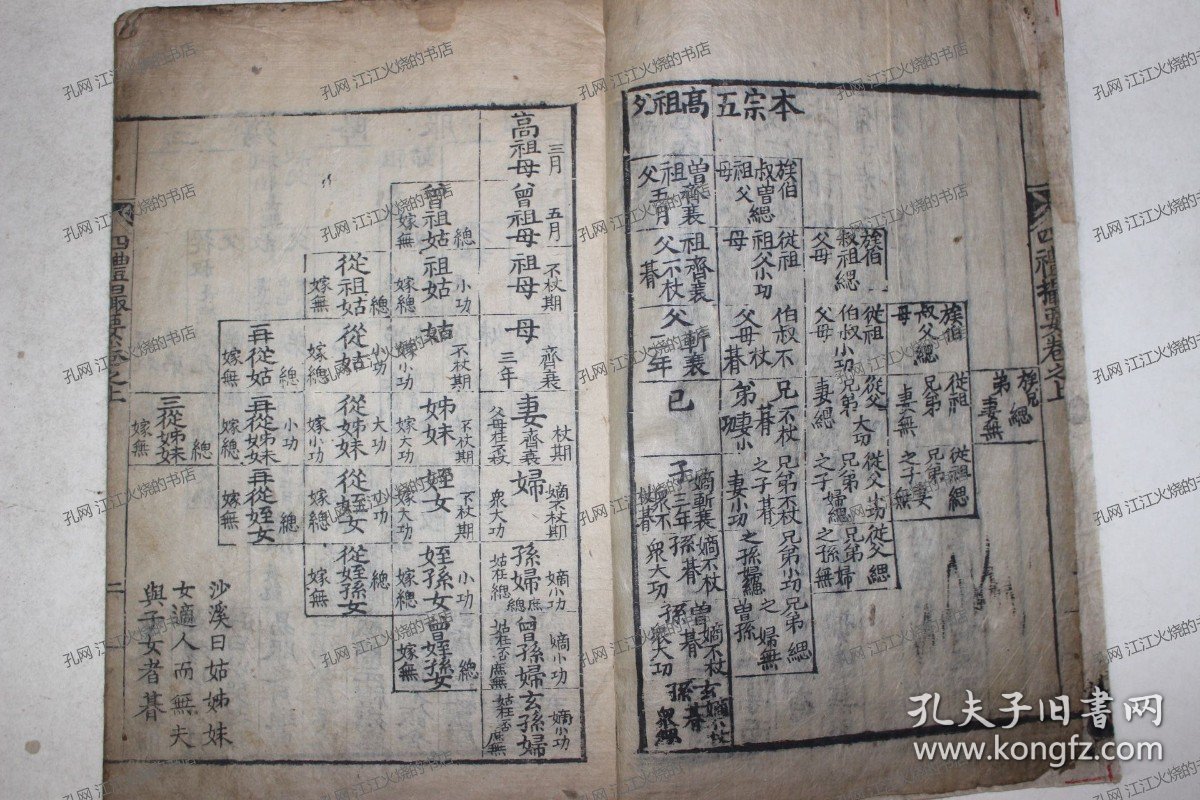 本宗五
高祖父
族伯
叔曽緦
祖父
母
曽齊衰
祖五月
父
族伯
叔祖緦
父母
從祖
祖父小功
母
祖齊衰
父不杖
朞
族伯
叔父緦
母
從祖
伯叔小功
父母
伯叔不
父母杖
朞
父斬衰
三年
族兄
弟緦
妻無
從祖
兄弟
妻無
從父
兄弟大功
妻緦
兄不杖
弟朞
妻小
功
己
從祖緦
兄弟妻
之子無
從父小功
兄弟
之子婦緦
兄弟不杖
之子朞
妻小功
子
嫡斬衰
三年
衆不
杖朞
從父緦
兄弟
之孫婦無
兄弟小功
之孫婦緦
孫
嫡不杖
朞
衆大功
兄弟緦
之曽孫
婦無
曽孫
嫡不杖
朞
衆大功
玄孫
嫡不杖
朞
衆緦
四禮撮要卷之上
高祖母
三月
曾祖母
五月
曾祖姑
緦
嫁無
祖母
不杖期
祖姑
小功
嫁緦
從祖姑
緦
嫁無
母
齊衰
三年
姑
不杖期
嫁小功
從姑
小功
嫁緦
再從姑
緦
嫁無
妻
杖期
齊衰
父母在不杖
姊妹
不杖期
嫁大功
從姊妹
大功
嫁小功
再從姊妹
小功
嫁緦
三從姊妹
緦
嫁無
婦
嫡不杖期
衆大功
姪女
不杖期
嫁大功
從姪女
小功
嫁緦
再從姪女
緦
嫁無
孫婦
嫡小功
姑在緦
庶緦
姪孫女
小功
嫁緦
從姪孫女
緦
嫁無
曾孫婦
嫡小功
姑在否
庶無
曾姪孫女
緦
嫁無
玄孫婦
嫡小功
姑在否
庶無
沙溪曰姑姊妹
女適人而無夫
與子女者朞
四禮撮要卷之上
二
孔网 江江火烧的书店
孔夫子旧书网
www.kongfz.com